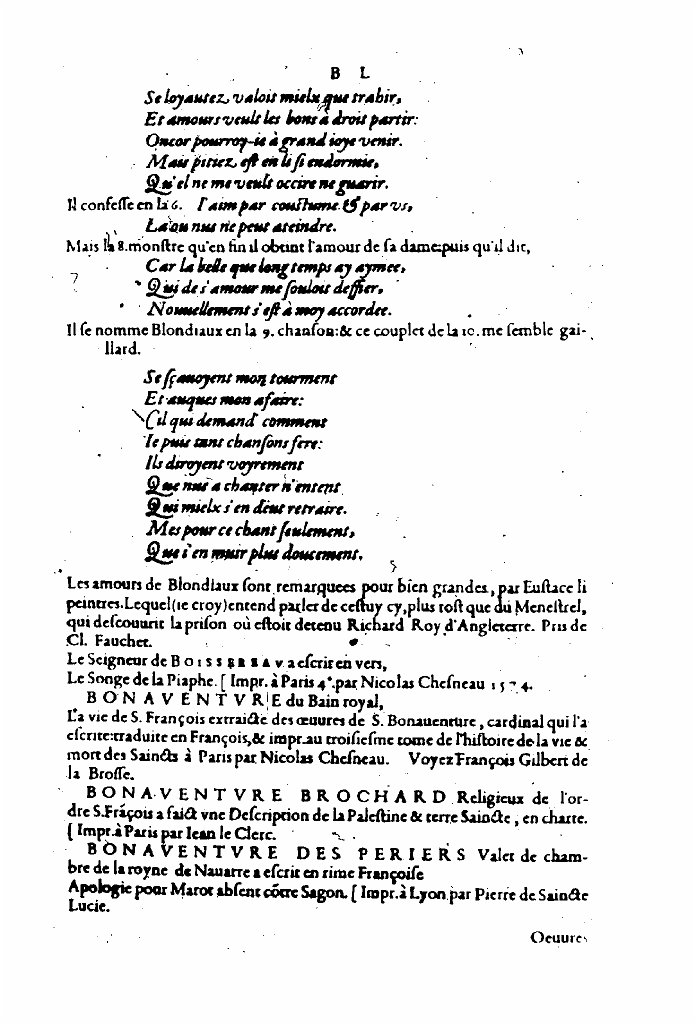 B L
Se loyautez valoit mielx que trahir,
Et amours veult les bons à droit partir:
Oncor pourroy-ie à grand ioye venir.
Mais pitiez est en li si endormie,
Qu'el ne me veult occire ne guarir.
Il confesse en la 6. I'aim par coustume & par vs,
La où nus ne peut ateindre.
Mais la 8. monstre qu'en fin il obtint l'amour de sa dame: puis qu'il dit,
Car la belle que long temps ay aymee,
Qui de s'amour me souloit deffier,
Nouuellement s'est à moy accordee.
Il se nomme Blondiaux en la 9. chanson: & ce couplet de la 10. me semble gai-
llard.
Se sçauoyent mon tourment
Et auques mon afaire:
Cil qui demand' comment
Ie puis tant chansons fere:
Ils diroyent voyrement
Que nus a chanter n'entent
Qui mielx s'en deut retraire.
Mes pour ce chant seulement,
Que i'en muir plus doucement.
Les amours de Blondiaux sont remarquees pour bien grandes, par Eustace li
peintres. Lequel (ie croy) entend parler de cestuy cy, plus tost que du Menestrel,
qui descouurit la prison où estoit detenu Richard Roy d'Angleterre. Pris de
Cl. Fauchet.
Le Seigneur de BOISSEREAV a escrit en vers,
Le Songe de la Piaphe. [Impr. à Paris 4°. par Nicolas Chesneau 1574.
BONAVENTVRE du Bain royal,
La vie de S. François extraicte des œuures de S. Bonauenture, cardinal qui l'a
escrite: traduite en François, & impr. au troisiesme tome de l'histoire de la vie &
mort des Saincts à Paris par Nicolas Chesneau. Voyez François Gilbert de
la Brosse.
BONAVENTVRE BROCHARD Religieux de l'or-
dre S. Fráçois a faict vne Description de la Palestine & terre Saincte, en charte.
[Impr. à Paris par Iean le Clerc.
BONAVENTVRE DES PERIERS Valet de cham-
bre de la royne de Nauarre a escrit en rime Françoise
Apologie pour Marot absent cõtre Sagon. [Impr. à Lyon par Pierre de Saincte
Lucie.
Oeuures